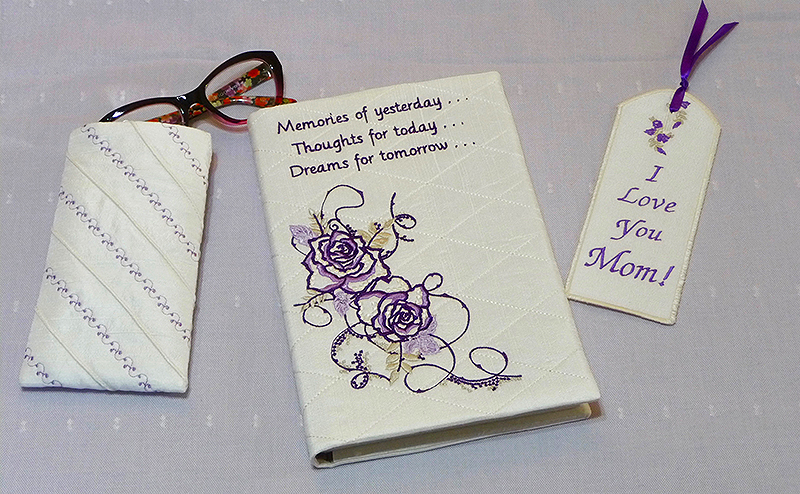 Memories of yesterday . . .
Thoughts for today . . .
Dreams for tomorrow . . .
I
Love
You
Mom!